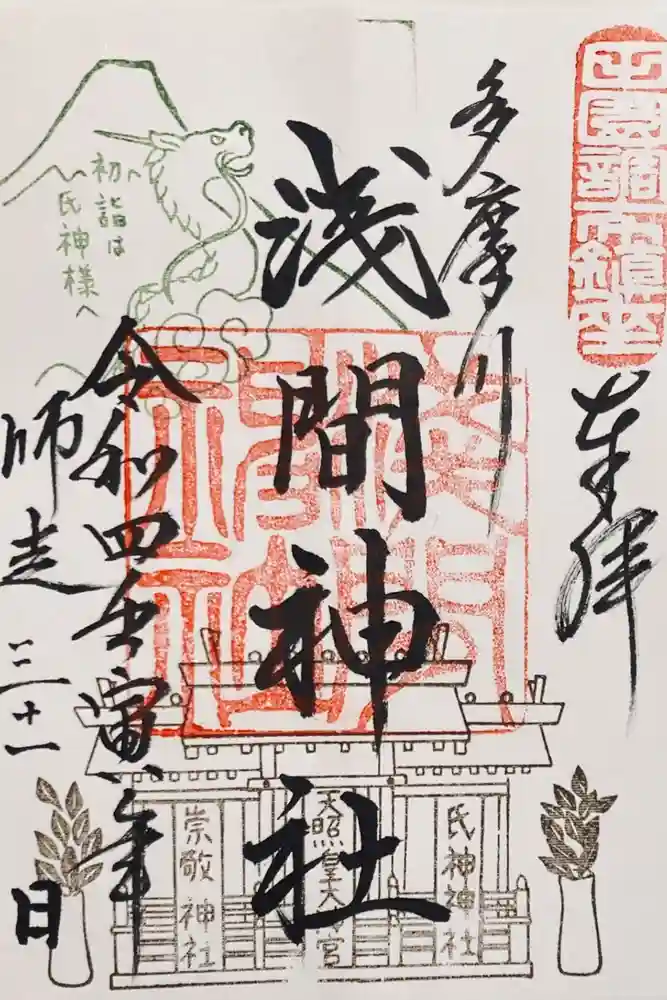 奉拝
多摩川
浅間神社
令和四壬寅年
師走三十一日
初詣は
氏神様へ
田園調布鎮座
氏神神社
天照皇大神宮
崇敬神社